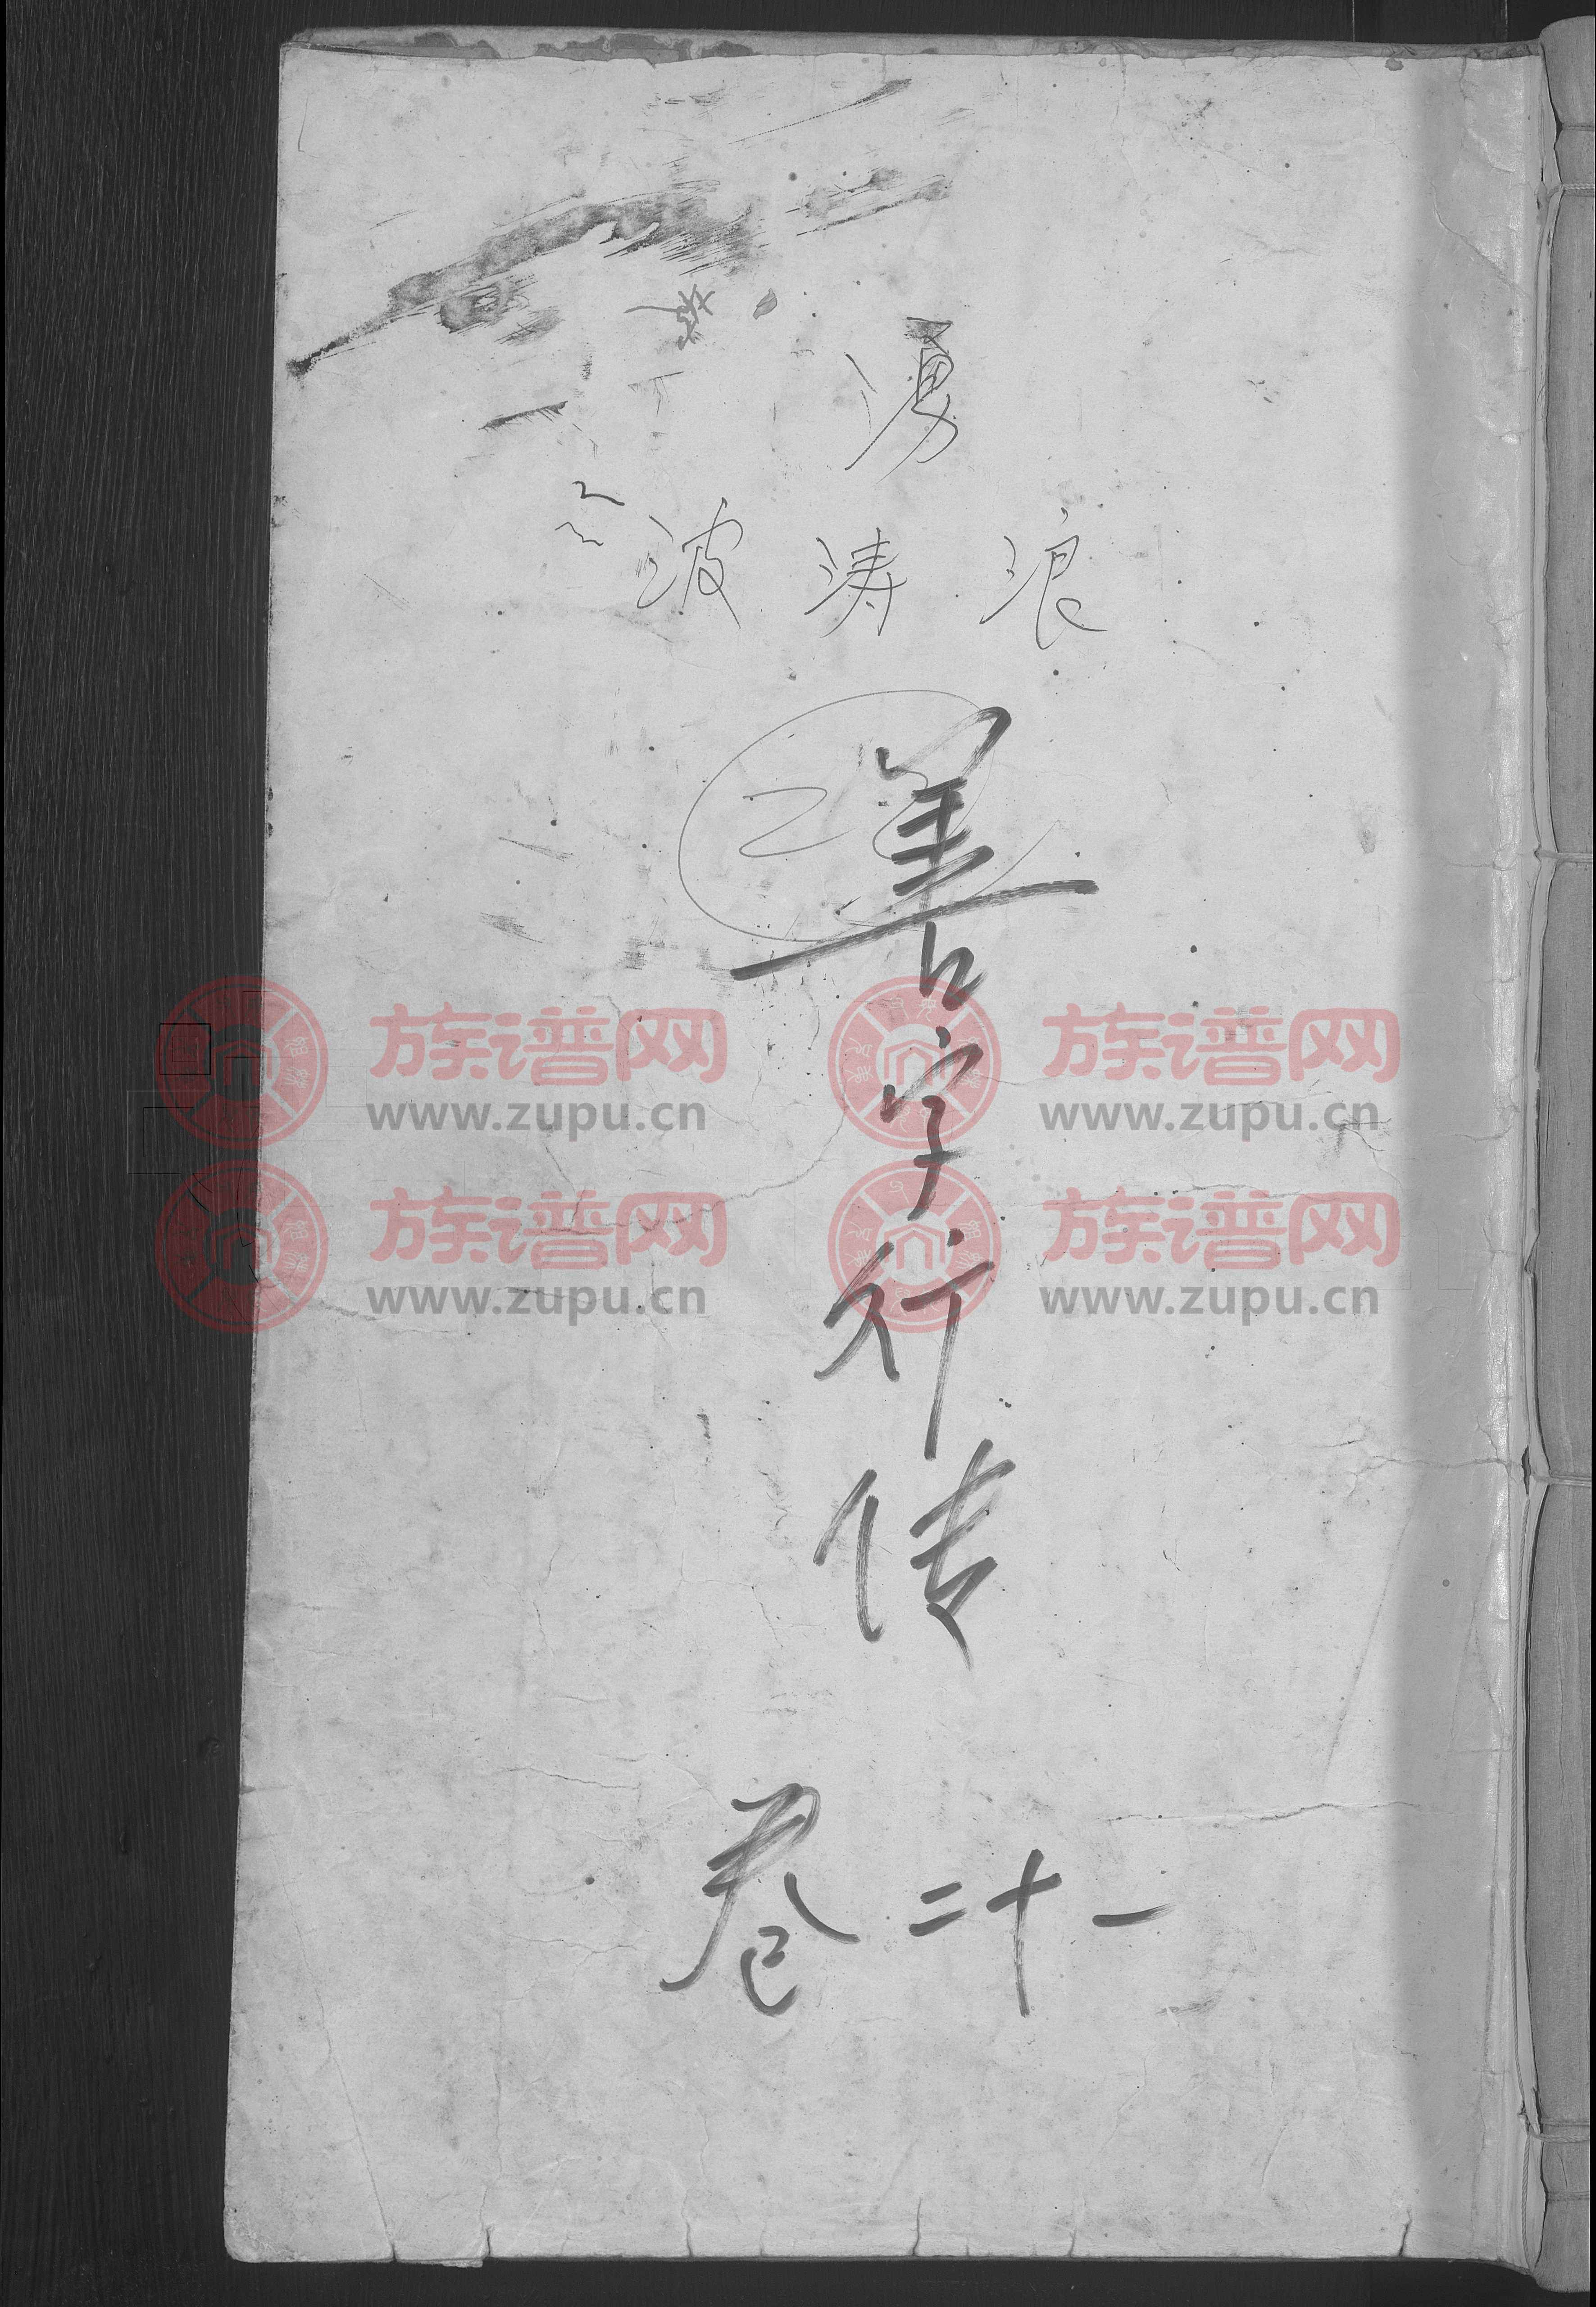 湧
波涛浪
善字行传
卷二十一
族谱网 族谱网
www.zupu.cn www.zupu.cn
族谱网 族谱网
www.zupu.cn www.zupu.cn